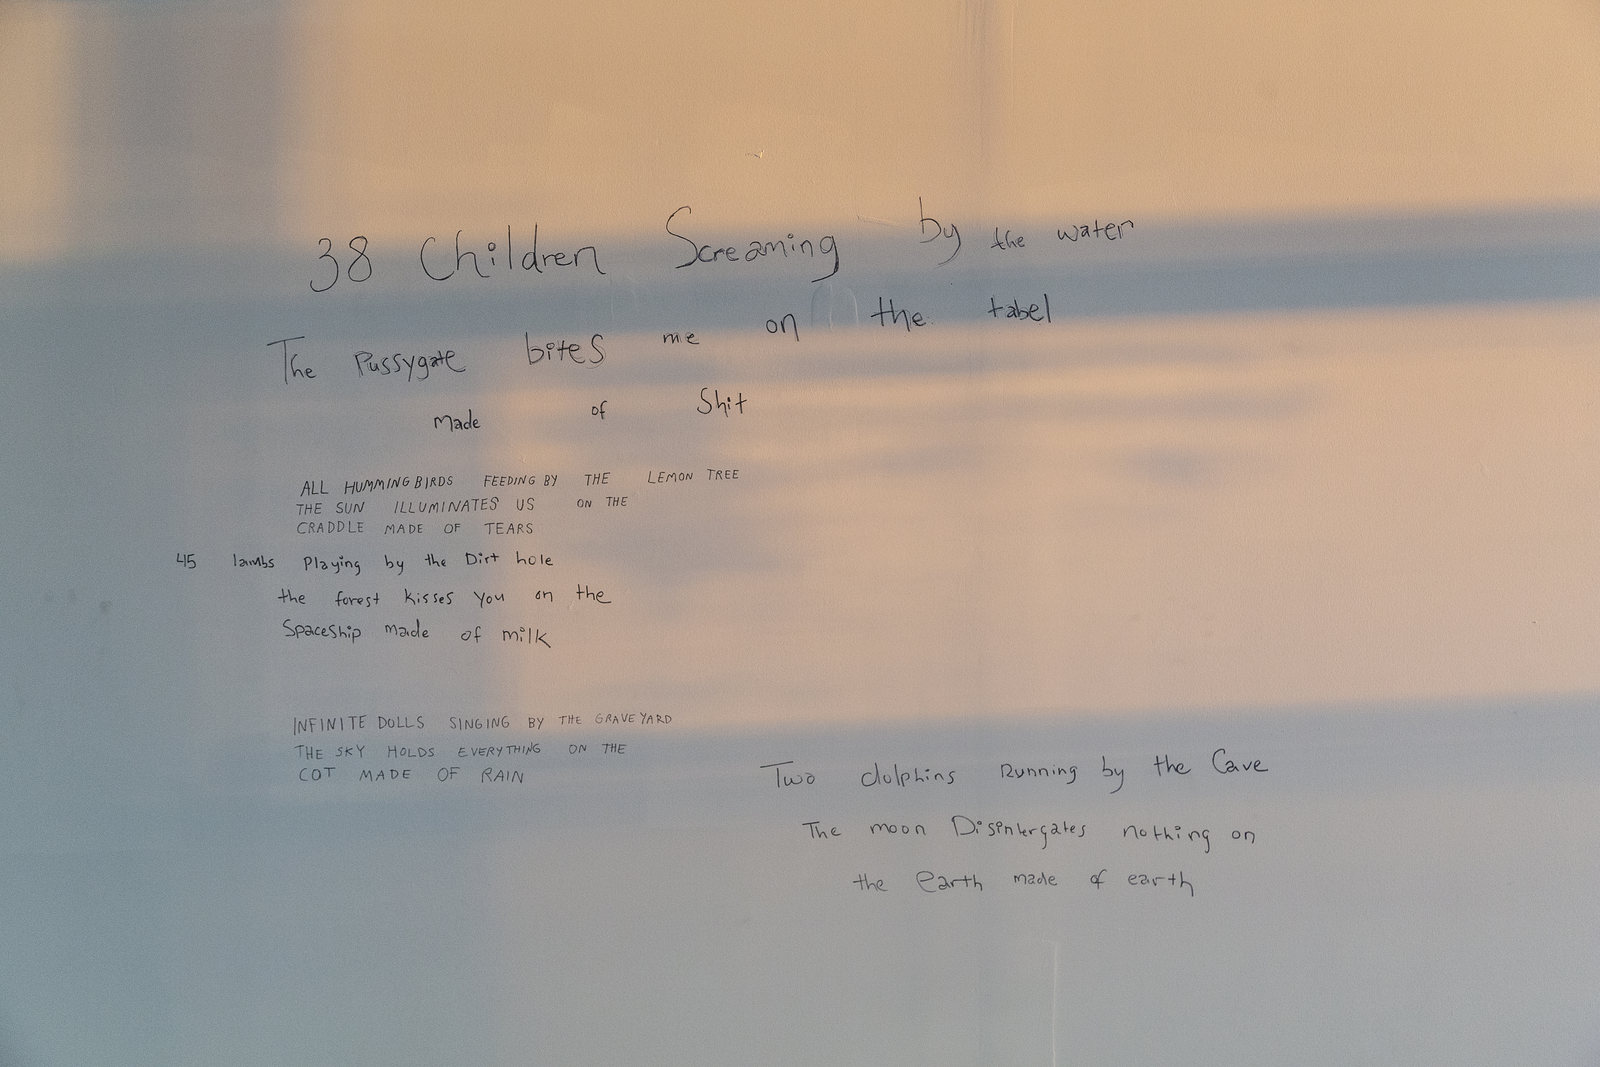 38 Children Screaming by the water
The Pussygate bites me on the tabel
made of Shit
ALL HUMMINGBIRDS FEEDING BY THE LEMON TREE
THE SUN ILLUMINATES US ON THE
CRADDLE MADE OF TEARS
45 lambs Playing by the Dirt hole
the forest kisses you on the
Spaceship made of milk
INFINITE DOLLS SINGING BY THE GRAVEYARD
THE SKY HOLDS EVERYTHING ON THE
COT MADE OF RAIN
Two dolphins Running by the Cave
The moon Disintergates nothing on
the earth made of earth